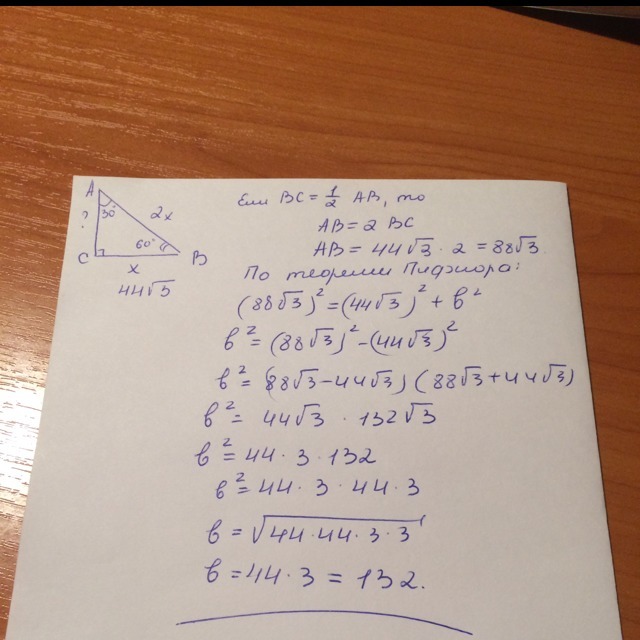 A
30°
2x
?
60°
C
B
x
44√3
Если BC = 1/2 AB, то
AB = 2 BC
AB = 44√3 · 2 = 88√3.
По теореме Пифагора:
(88√3)² = (44√3)² + b²
b² = (88√3)² - (44√3)²
b² = (88√3 - 44√3)(88√3 + 44√3)
b² = 44√3 · 132√3
b² = 44 · 3 · 132
b² = 44 · 3 · 44 · 3
b = √44·44·3·3
b = 44 · 3 = 132.